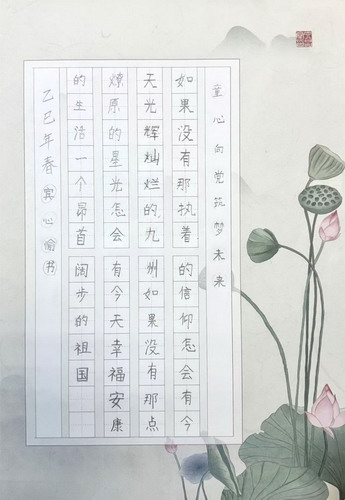 童心向党筑梦未来
如果没有那执着的信仰怎会有今
天光辉灿烂的九州如果没有那点
燎原的星光怎会有今天幸福安康
的生活一个昂首阔步的祖国
乙巳年春宾心书